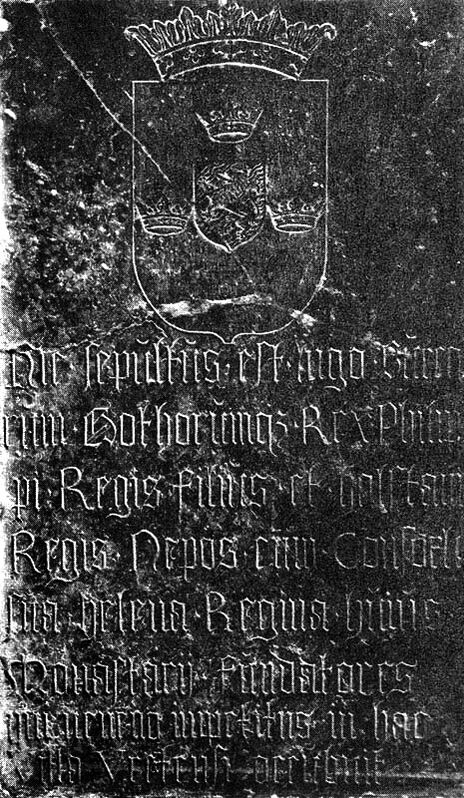 Hic · sepultus · est · ingo · Sueco
rum · Gothorumq3 · Rex Philip
pi · Regis · filius · et · halstani
Regis · Nepos · cum · Consorte
sua · helena · Regina · huius
Monasterij · fundatores
in hac
occubuit